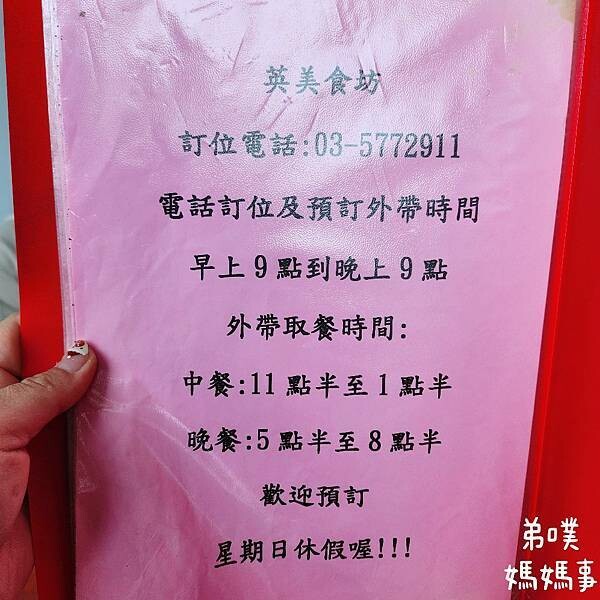 英美食坊
訂位電話:03-5772911
電話訂位及預訂外帶時間
早上9點到晚上9點
外帶取餐時間:
中餐:11點半至1點半
晚餐:5點半至8點半
歡迎預訂
星期日休假喔!!!
弟噗
媽媽事